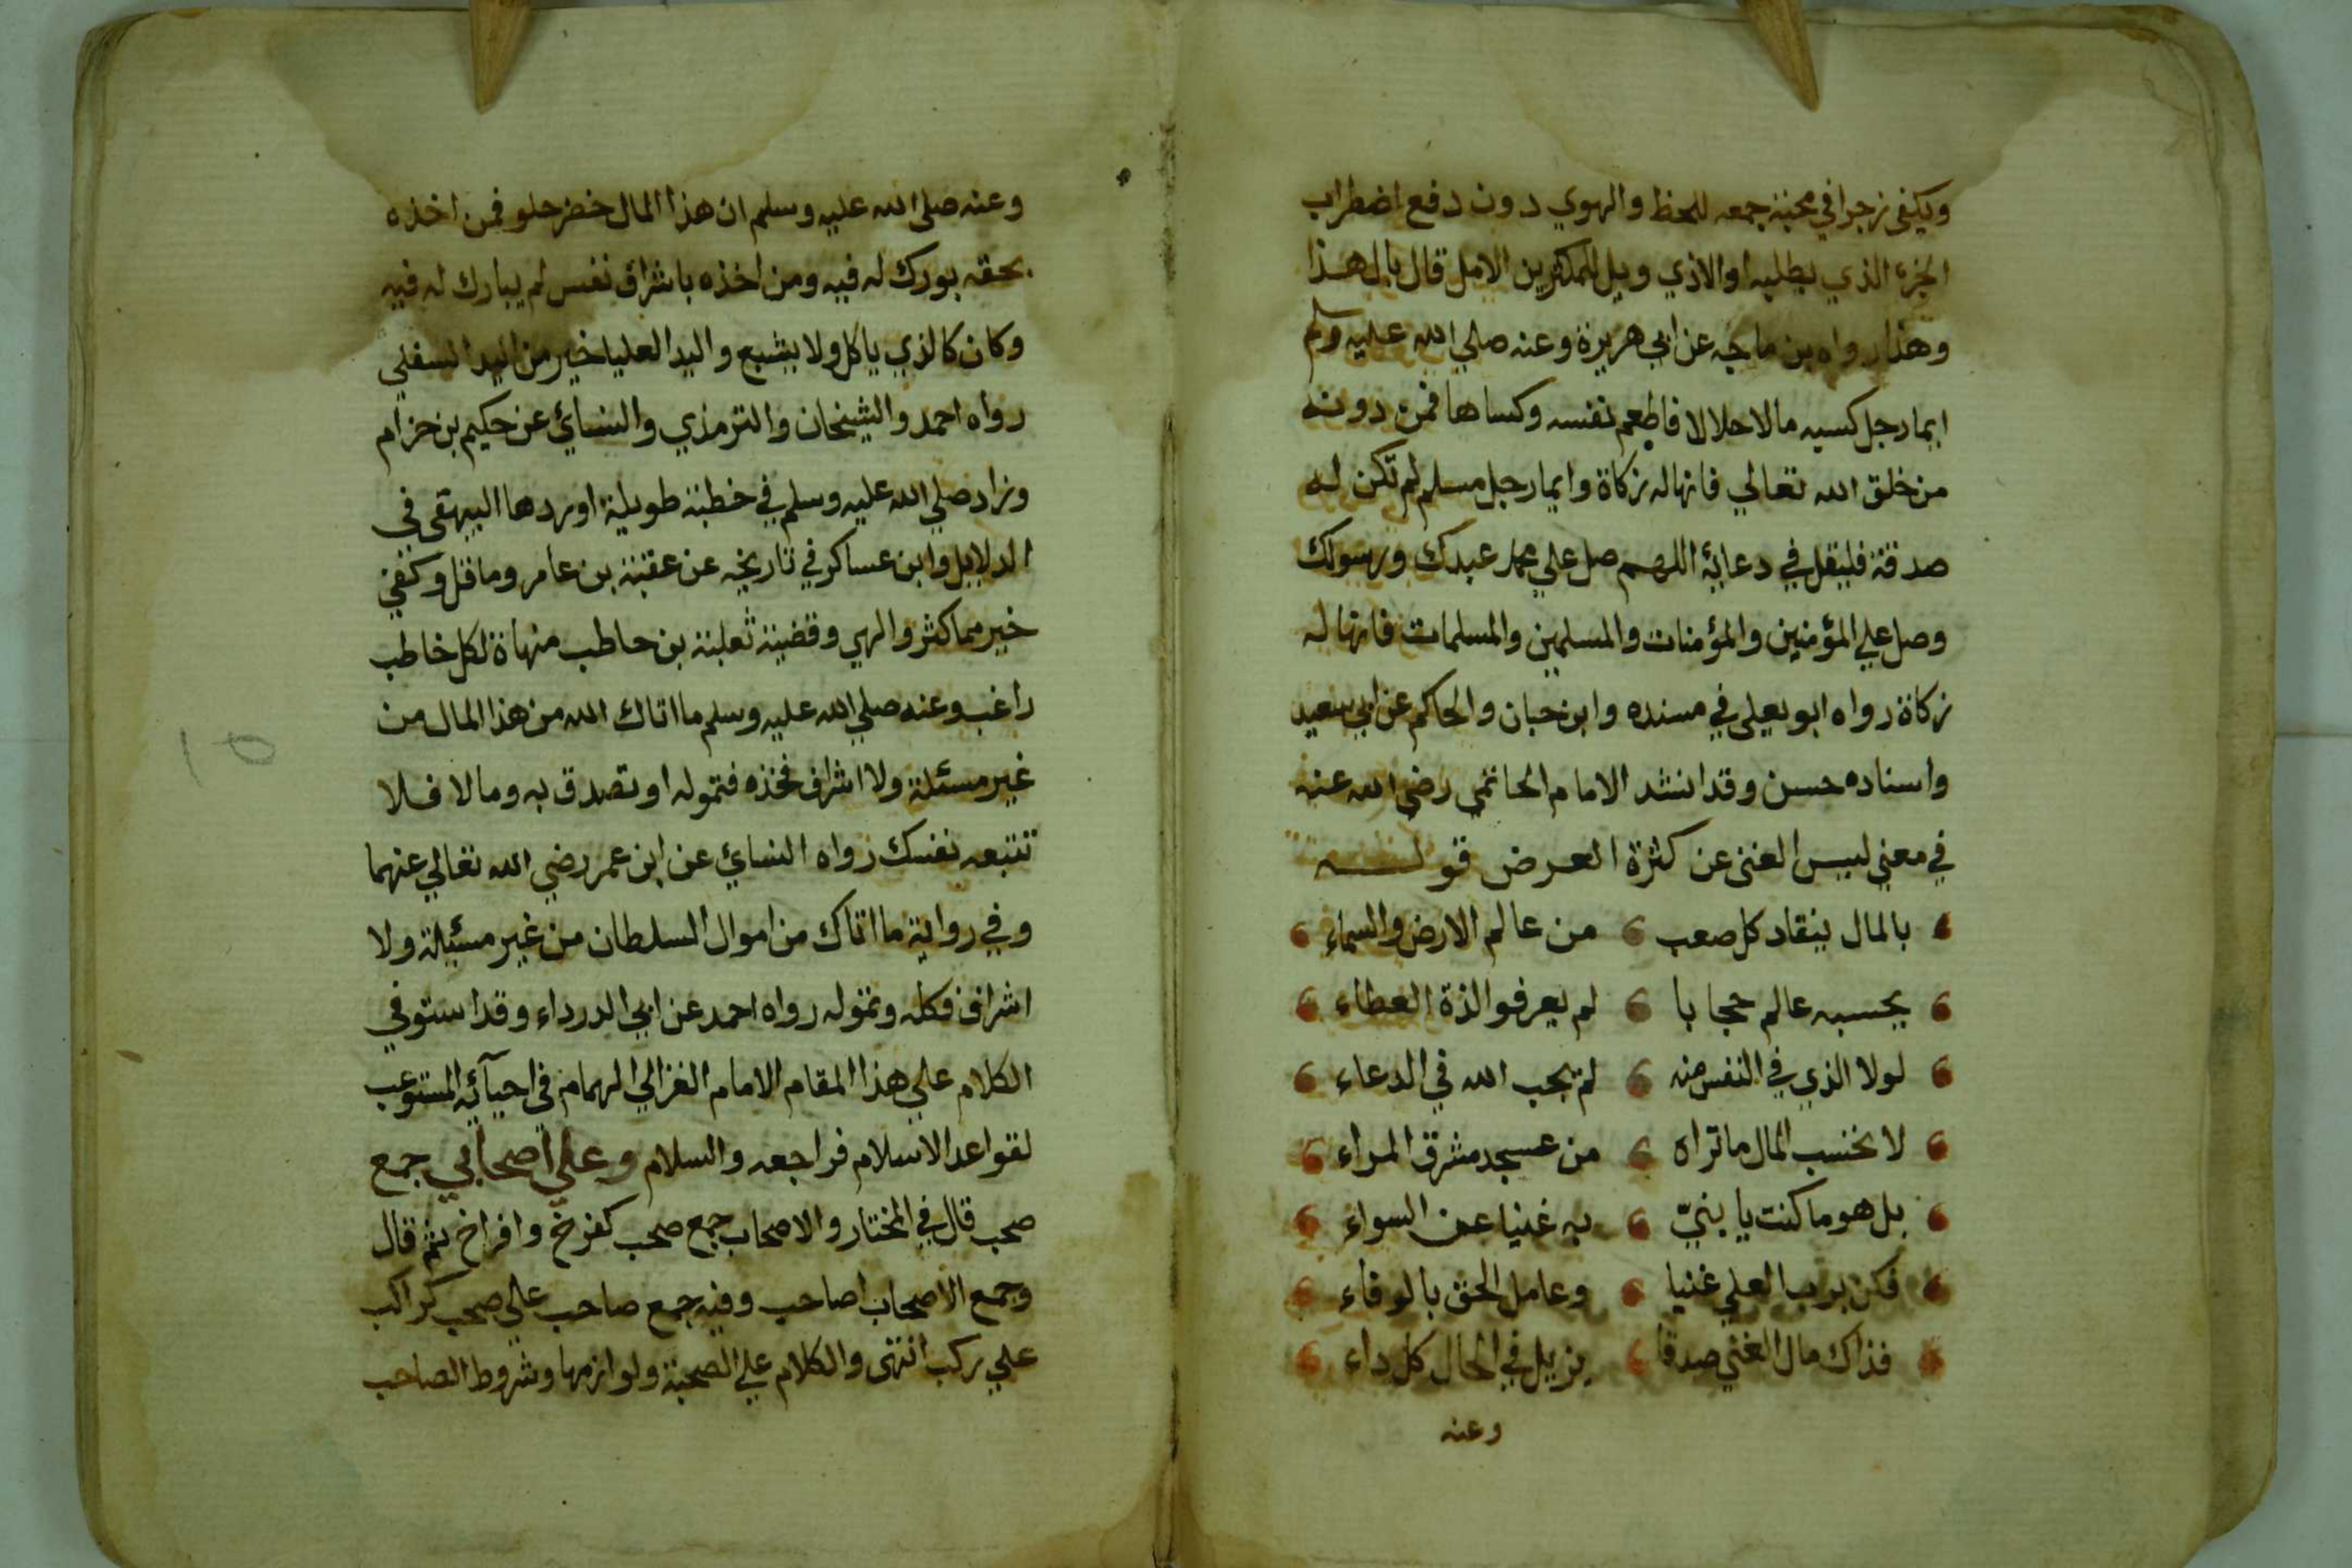 ويكفي زجرا في محبة جمعه للحظ والهوي دون دفع اضطراب
الجزء الذي يطلبه او الاذي ويل للمكثرين الامل قال بالمال هذا
وهذا رواه بن ماجه عن ابي هريرة وعنه صلي الله عليه وسلم
ايما رجل كسبه مالا حلالا فاطعم نفسه وكساها فمن دونه
من خلق الله تعالي فانها له زكاة وايما رجل مسلم لم تكن له
صدقة فليقل في دعائه اللهم صل علي محمد عبدك ورسولك
وصل علي المؤمنين والمؤمنات والمسلمين والمسلمات فانها له
زكاة رواه ابو يعلى في مسنده وابن حبان والحاكم عن ابي سعيد
واسناده حسن وقد انشد الامام الحاتمي رضي الله عنه
في معني ليس الغنى عن كثرة العرض قوله
بالمال ينقاد كل صعب من عالم الارض والسماء
يحسبه عالم حجابا لم يعرفوا لذة العطاء
لولا الذي في النفس منه لم يجب الله في الدعاء
لا تحسب المال ما تراه من عسجد مشرق المراء
بل هو ما كنت يا بنيّ به غنيا عن السواء
فكن برب العلي غنيا وعامل الحق بالوفاء
فذاك مال الغني صدقا يزيل في الحال كل داء
وعنه
وعنه صلي الله عليه وسلم ان هذا المال خضر حلو فمن اخذه
بحقه بورك له فيه ومن اخذه باشراف نفس لم يبارك له فيه
وكان كالذي ياكل ولا يشبع واليد العليا خير من اليد السفلي
رواه احمد والشيخان والترمذي والنسائي عن حكيم بن حزام
وزاد صلي الله عليه وسلم في خطبة طويلة اوردها البيهقي في
الدلايل وابن عساكر في تاريخه عن عقبة بن عامر وما قل وكفي
خير مما كثر والهي وقضية ثعلبة بن حاطب منهاة لكل خاطب
راغب وعنه صلي الله عليه وسلم ما اتاك الله من هذا المال من
غير مسئلة ولا اشراف فخذه فتموله او تصدق به وما لا فلا
تتبعه نفسك رواه النسائي عن ابن عمر رضي الله تعالي عنهما
وفي رواية ما اتاك من اموال السلطان من غير مسئلة ولا
اشراف فكله وتموله رواه احمد عن ابي الدرداء وقد استوفي
الكلام علي هذا المقام الامام الغزالي الهمام في احيآئه المستوعب
لقواعد الاسلام فراجعه والسلام وعلي اصحابي جمع
صحب قال في المختار والاصحاب جمع صحب كفرخ وافراخ ثم قال
وجمع الاصحاب اصاحب وفيه جمع صاحب علي صحب كراكب
علي ركب انتهى والكلام علي الصحبة ولوازمها وشروط الصاحب
١٥